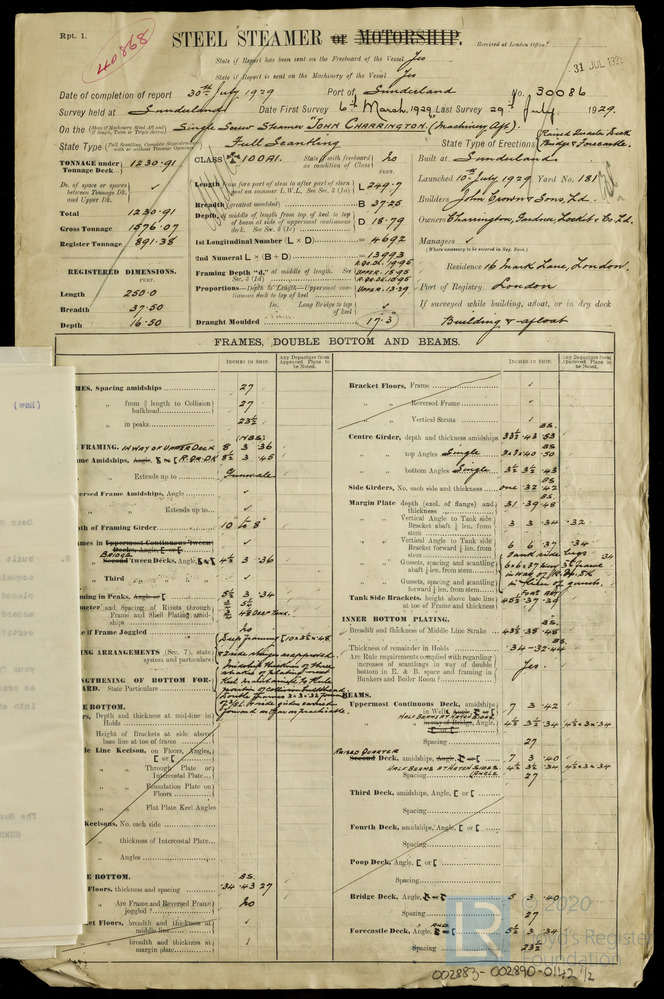 Rpt. 1.
40868
STEEL STEAMER or MOTORSHIP.
Received at London Office
31 JUL 192
State if Report has been sent on the Freeboard of the Vessel Yes
State if Report is sent on the Machinery of the Vessel Yes
Date of completion of report 30th July 1929 Port of Sunderland No. 30086
Survey held at Sunderland Date First Survey 6th March, 1929 Last Survey 29th July, 1929.
On the Single Screw Steamer "JOHN CHARRINGTON" (Machinery Aft).
State Type Full Scantling State Type of Erections Raised Quarter Deck Bridge & Forecastle.
TONNAGE under Tonnage Deck 1230.91
CLASS 100A1. State if with freeboard as condition of Class No
Built at Sunderland
Launched 10th July 1929 Yard No. 181
Do. of space or spaces between Tonnage Dk. and Upper Dk. ✓
Length from fore part of stem to after part of stern post on summer L.W.L. See Sec. 5 (1a) L 249.7
Breadth (greatest moulded) B 37.25
Builders John Crown & Sons, Ld.
Total 1230.91
Depth, at middle of length from top of keel to top of beam at side of uppermost continuous deck. See Sec. 5 (1c) D 18.79
Owners Charrington, Gardner, Locket & Co. Ld.
Gross Tonnage 1576.07
1st Longitudinal Number (L × D) = 4692
Managers ✓
(Where necessary to be entered in Reg. Book.)
Register Tonnage 891.38
2nd Numeral L × (B + D) = 13993
Residence 16 Mark Lane, London.
REGISTERED DIMENSIONS.
FEET.
Framing Depth "d," at middle of length. See Sec. 5 (1d) UPPER. 15.95
Length 250.0
Proportions—Depth to Length—Uppermost continuous deck to top of keel UPPER. 13.29
Port of Registry London
Breadth 37.50
Do. Long Bridge to top of keel ✓
If surveyed while building, afloat, or in dry dock
Depth 16.50
Draught Moulded 17.3
Building & afloat
FRAMES, DOUBLE BOTTOM AND BEAMS.
INCHES IN SHIP. Any Departure from Approved Plans to be Noted.
INCHES IN SHIP. Any Departure from Approved Plans to be Noted.
MES, Spacing amidships 27
" from ⅗ length to Collision bulkhead 27
" in peaks 23½
FRAMING. IN WAY OF UPPER DECK 8 3 .36
me Amidships, Angle, (R.QR.DK 8½ 3 .45
" Extends up to Gunwale
ersed Frame Amidships, Angle ✓
" Extends up to ✓
th of Framing Girder
mes in Uppermost Continuous 'tween Decks, Angle,
BRIDGE
" Second 'Tween Decks, Angle, 4½ 3 .36
" Third " " ✓
ming in Peaks, Angle or 5½ 3 .34
meter and Spacing of Rivets through Frame and Shell Plating amidships
e if Frame Joggled No
ING ARRANGEMENTS (Sec. 7), state system and particulars
NGTHENING OF BOTTOM FORWARD. State Particulars
E BOTTOM.
rs, Depth and thickness at mid-line in Holds
Height of Brackets at side above base line at toe of frame
le Line Keelson, on Floors, Angles, [ or [
" " Through Plate or Intercostal Plate
" " Foundation Plate on Floors
" " Flat Plate Keel Angles
Keelsons, No. each side
" thickness of Intercostal Plate
" Angles
E BOTTOM.
BS.
Floors, thickness and spacing .34 .43 27
" Are Frame and Reversed Frame joggled? No
et Floors, breadth and thickness at middle line ✓
" breadth and thickness at margin plate ✓
Bracket Floors, Frame ✓
" " Reversed Frame ✓
" " Vertical Struts ✓
BS.
Centre Girder, depth and thickness amidships 33½ .43 .53
" top Angles Single 3 × 3 × .40 .50
" bottom Angles Single 3½ 3½ .43
BS.
Side Girders, No. each side and thickness one .32 .42
BS.
Margin Plate depth (excl. of flange) and thickness 31 .39 .48
" Vertical Angle to Tank side Bracket abaft ¼ len. from stem 3 3 .34 .32
" Vertical Angle to Tank side Bracket forward ¼ len. from stem 6 6 .37 .34
" Gussets, spacing and scantling abaft ¼ len. from stem
" Gussets, spacing and scantling forward ¼ len. from stem
Tank Side Brackets, height above base line at toe of Frame and thickness
INNER BOTTOM PLATING.
BS.
Breadth and thickness of Middle Line Strake 43½ .38 .48
Thickness of remainder in Holds .34 – .32 .44
Are Rule requirements complied with regarding increases of scantlings in way of double bottom in E. & B. space and framing in Bunkers and Boiler Room? Yes.
BEAMS.
Uppermost Continuous Deck, amidships in Wells, Angle, 7 3 .42
HALF BEAMS AT HATCH SIDES
" in way of Bridge, Angle, 4½ 3½ .34 4½ × 3 × .34
Spacing 27
RAISED QUARTER
Second Deck, amidships, Angle, 7 3 .40
HALF BEAMS AT HATCH SIDES (ANGLE 4½ 3½ .34 4½ × 3 × .34
Spacing 27
Third Deck, amidships, Angle, [ or [
Spacing
Fourth Deck, amidships, Angle, [ or [
Spacing
Poop Deck, Angle, [ or [
Spacing
Bridge Deck, Angle, 5 3 .40
Spacing 27
Forecastle Deck, Angle, 5½ 3 .34
Spacing 23½
LR
© 2020
Lloyd's Register
Foundation
002883-002890-0142 1/2